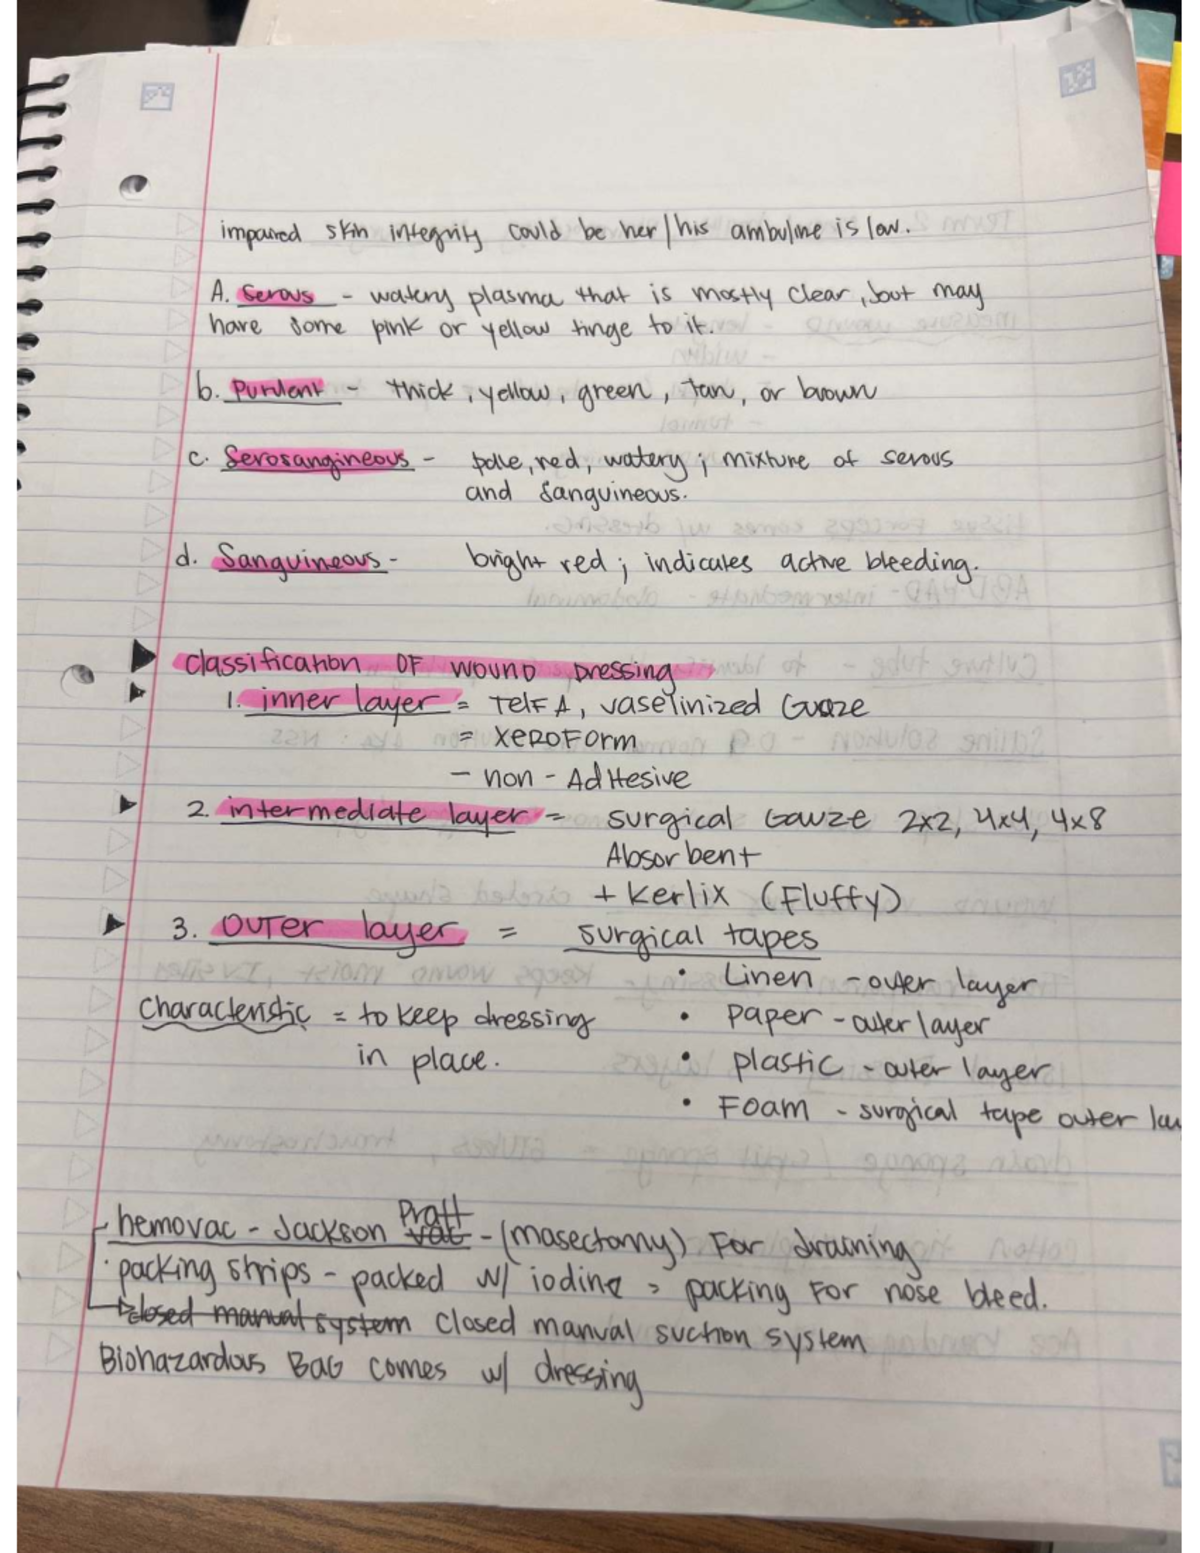 impaired skin integrity could be her/his ambuline is low.
A. Serous - watery plasma that is mostly clear, but may
have some pink or yellow tinge to it.
b. Purulent - thick, yellow, green, tan, or brown
c. Serosangineous - pale, red, watery; mixture of serous
and sanguineous.
d. Sanguineous - bright red; indicates active bleeding.
Classification OF wound Dressing
1. inner layer = TelFA, vaselinized Guaze
= XEROForm
- non-AdHesive
2. intermediate layer = surgical Gauze 2x2, 4x4, 4x8
Absorbent
+ Kerlix (Fluffy)
3. OUTer layer = surgical tapes
• Linen - outer layer
Characteristic = to keep dressing • paper - outer layer
in place. • plastic - outer layer
• Foam - surgical tape outer
hemovac - Jackson Pratt - (masectomy) For draining
· packing strips - packed w/ iodine > packing For nose bleed.
closed manual system Closed manual suction system
Biohazardous BaG comes w/ dressing